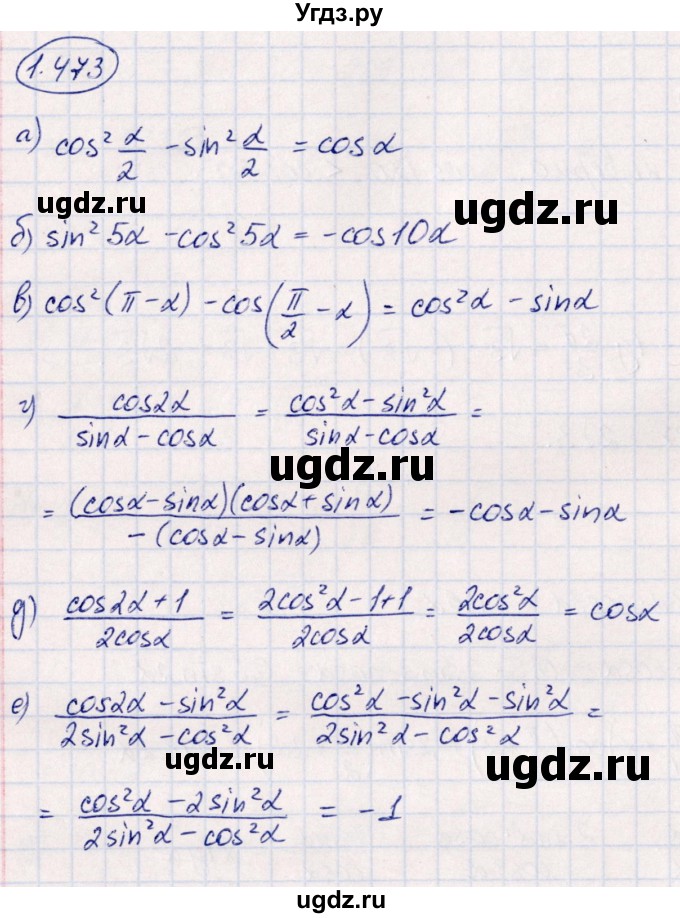 Угдз.ру
1.473
а) cos² α/2 - sin² α/2 = cos α
ugdz.ru
ugdz.ru
б) sin² 5α - cos² 5α = - cos 10α
в) cos² (π - α) - cos (π/2 - α) = cos² α - sin α
г) cos 2α / (sin α - cos α) = (cos² α - sin² α) / (sin α - cos α) =
ugdz.ru
= (cos α - sin α)(cos α + sin α) / -(cos α - sin α) = - cos α - sin α
д) (cos 2α + 1) / (2 cos α) = (2 cos² α - 1 + 1) / (2 cos α) = 2 cos² α / 2 cos α = cos α
е) (cos 2α - sin² α) / (2 sin² α - cos² α) = (cos² α - sin² α - sin² α) / (2 sin² α - cos² α) =
ugdz.ru
ugdz.ru
= (cos² α - 2 sin² α) / (2 sin² α - cos² α) = - 1
ugdz.ru